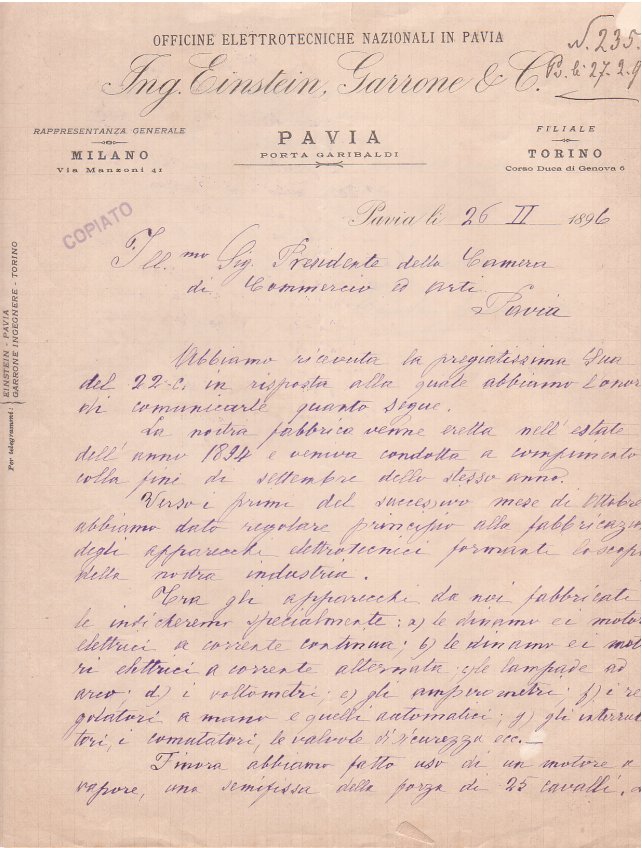 OFFICINE ELETTROTECNICHE NAZIONALI IN PAVIA
Ing. Einstein, Garrone & C.
N. 235.
li 27.2.9
RAPPRESENTANZA GENERALE
MILANO
Via Manzoni 41
PAVIA
PORTA GARIBALDI
FILIALE
TORINO
Corso Duca di Genova 6
Pavia li 26 II 1896
COPIATO
Per telegrammi: EINSTEIN - PAVIA
GARRONE INGEGNERE - TORINO
Ill.mo Sig. Presidente della Camera
di Commercio ed Arti
Pavia
Abbiamo ricevuta la pregiatissima Sua
del 22 c. in risposta alla quale abbiamo l'onor
di comunicarle quanto segue.
La nostra fabbrica venne eretta nell'estate
dell'anno 1894 e veniva condotta a compimento
colla fine di settembre dello stesso anno.
Verso i primi del successivo mese di Ottobre
abbiamo dato regolare principio alla fabbricazio
degli apparecchi elettrotecnici formanti lo scopo
della nostra industria.
Tra gli apparecchi da noi fabbricati
le indicheremo specialmente: a) le dinamo e i motori
elettrici a corrente continua; b) le dinamo e i moto
ri elettrici a corrente alternata c) le lampade ad
arco; d) i voltometri; e) gli amperometri; f) i re
golatori a mano e quelli automatici; g) gli interrut
tori, i comutatori, le valvole di sicurezza ecc.
Finora abbiamo fatto uso di un motore a
vapore, una semifissa della forza di 25 cavalli.